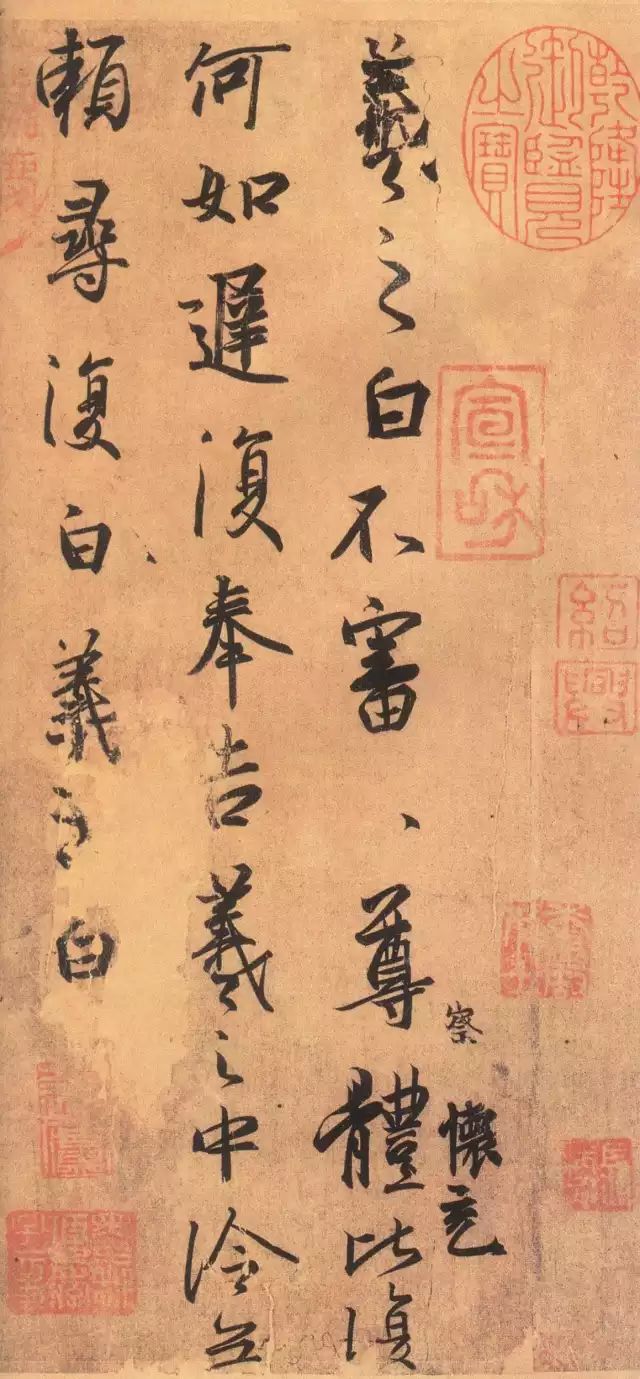 乾隆御覽之寶
紹興
宣和
察
懷充
羲之白不審、尊體比復
何如遲復奉告羲之中冷无
賴尋復白羲之白